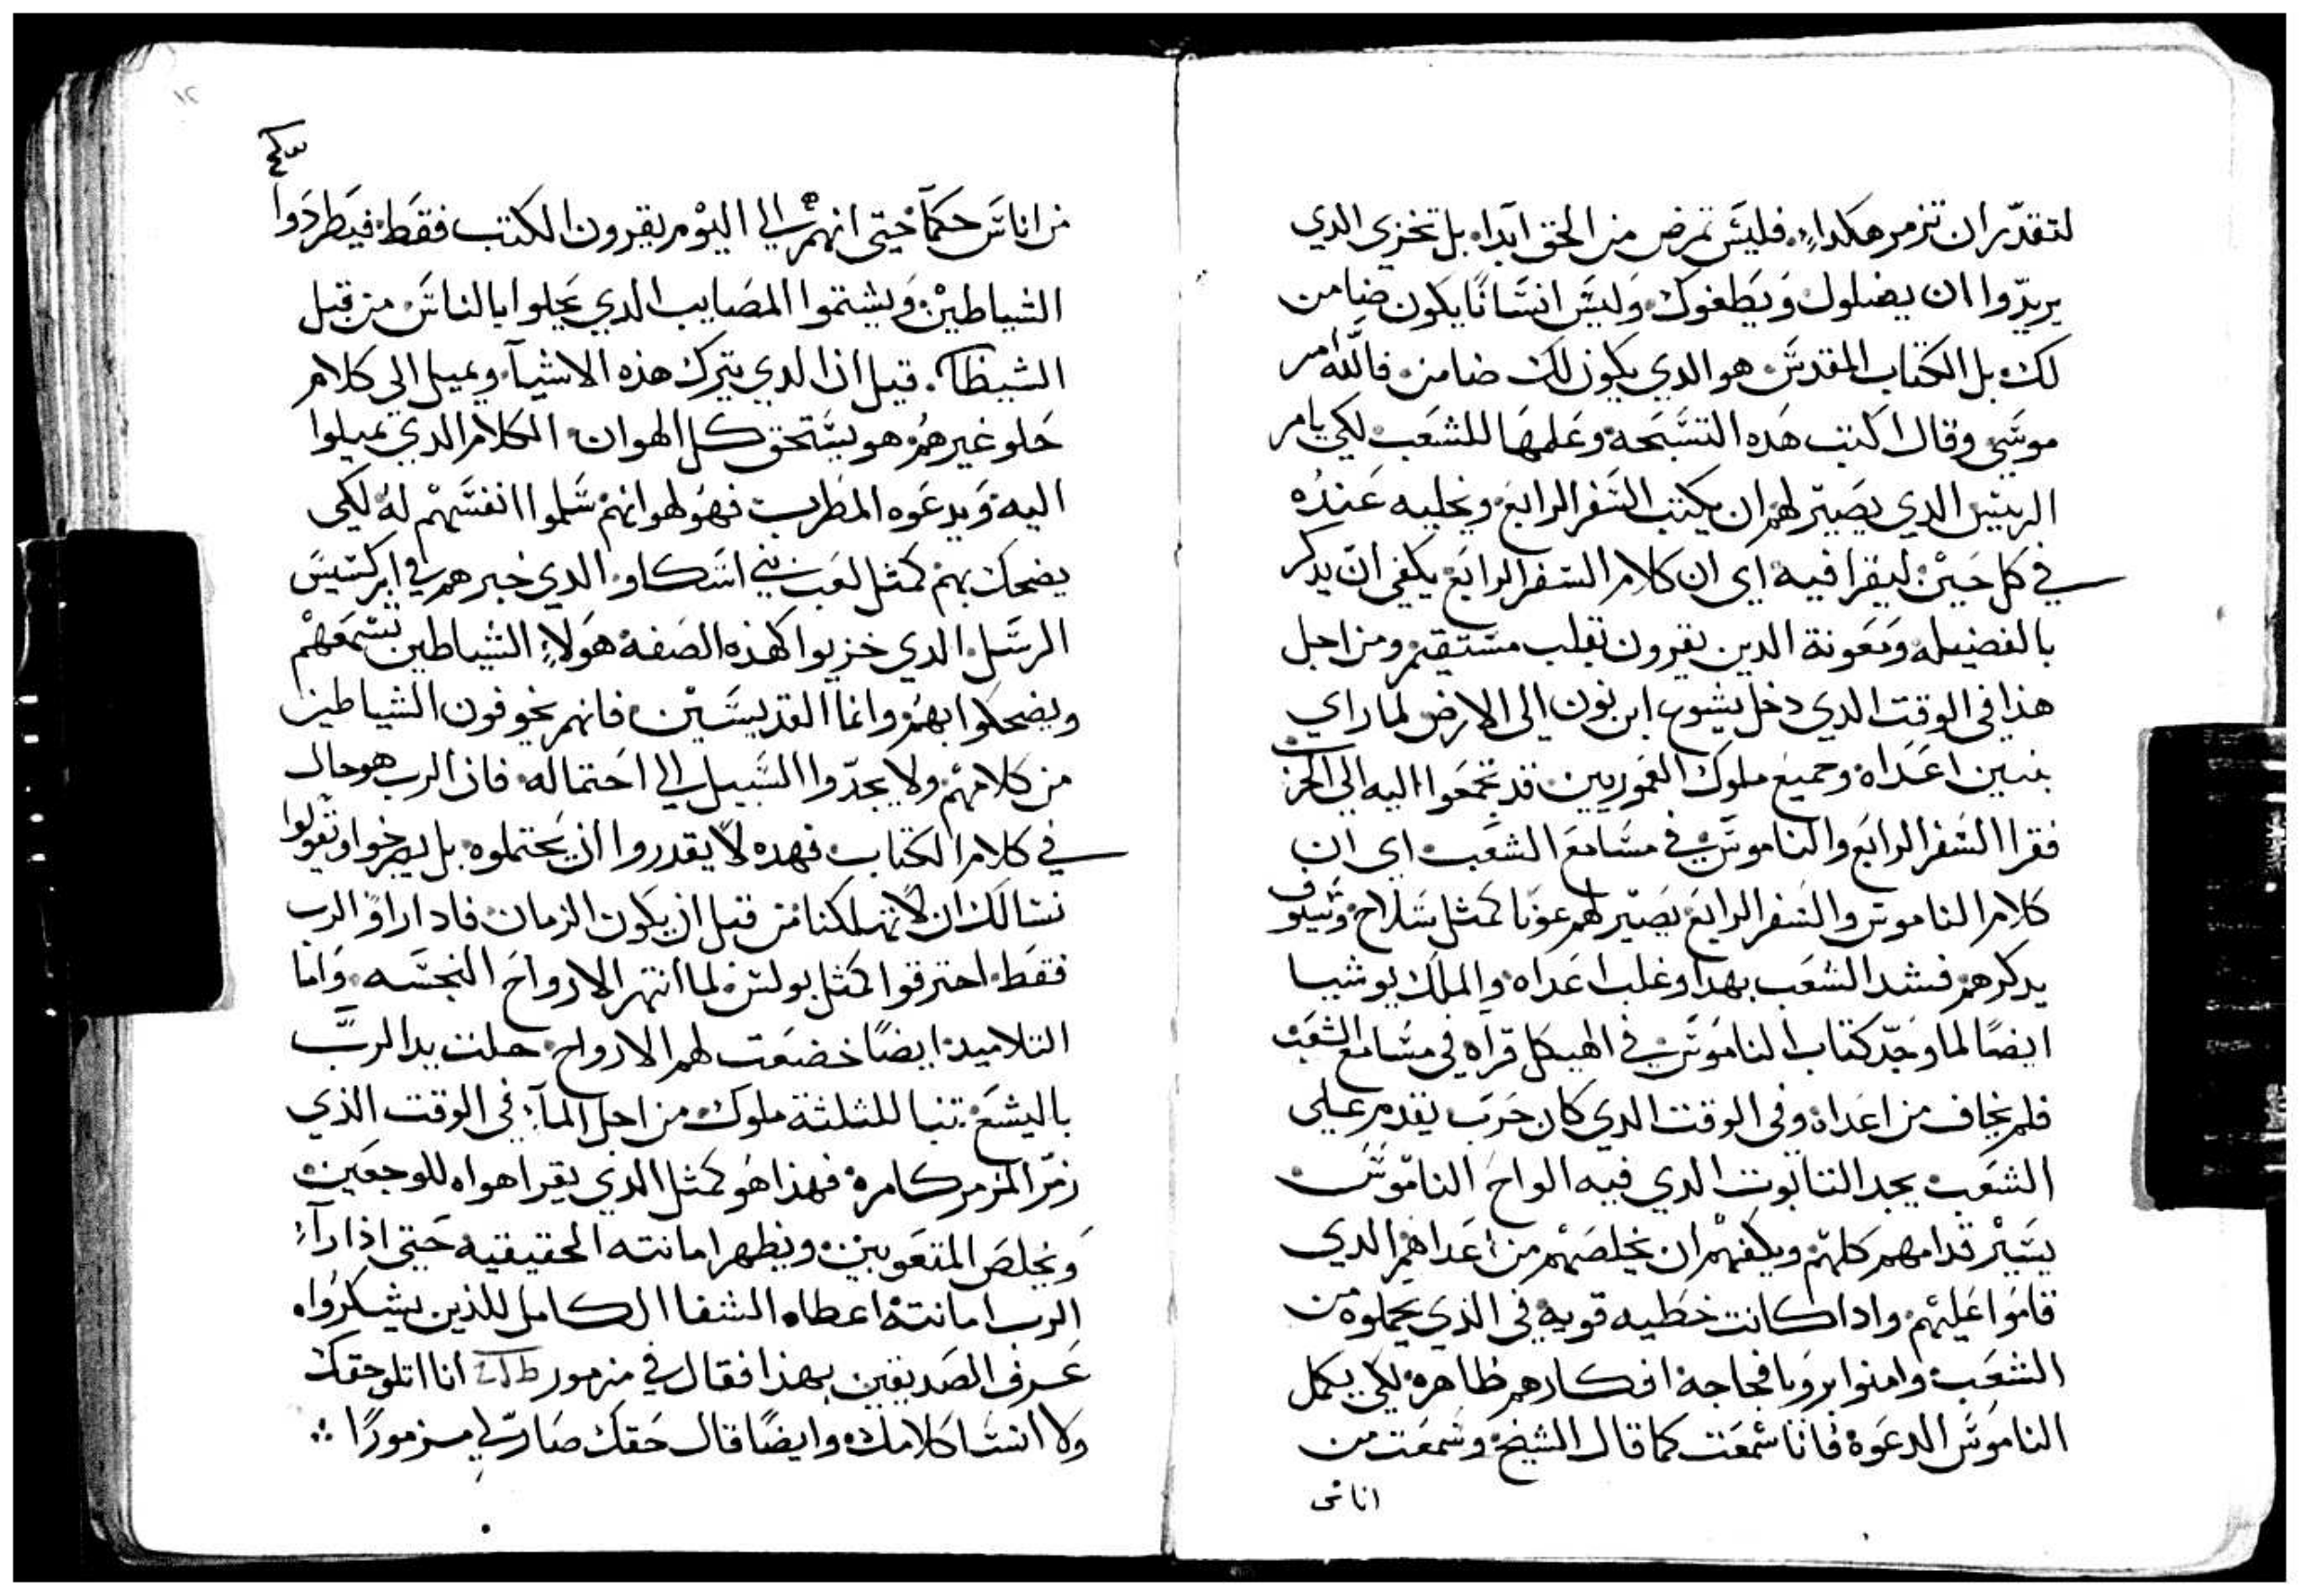 لتقدّر ان تزمر هكدا، فليَس تمرض من الحق ابدًا، بل تخزي الدي
يريدّوا ان يضلوك وَيَطغوك، وَليَس انسَانًا يكون ضامن
لك، بل الكتاب المقدسَ هو الدي يكون لك ضامن، فالله امر
موسَى وقال اكتب هَده التسَبَحه وعَلمهَا للشعَب، لكي يامر
الرييسَ الدي يصَيّر لهم ان يكتب السَفر الرابع، ويخليه عَندُه
في كل حَين، ليقرا فيه، اي ان كلام السَفر الرابَع يكفي ان يدكر
بالفضيله وَمعَونة الدين يقرون بقلب مستَقيم، ومن اجل
هذا في الوقت الدي دخل يشوع ابن نون الى الارض، لما راي
بنيين اعَداه، وجميع ملوك العَموريين، قد تجمعَوا اليه الي الحرب
فقرا السَفر الرابَع والناموسَ، في مسَامع الشعَب، اي ان
كلام الناموسَ والسَفر الرابَع، يصَير لهم عونًا كمثل سَلاح، وسَيوف
يدكرهم، فشد الشعَب بهدا وغلب اعَداه، والملك يوشيا
ايضًا لما وَجدّ كتاب الناموَسَ، في الهيكل قراه في مسَامع الشعَب
فلم يخاف من اعَداه، وفي الوقت الدي كان حَرب يقدم علي
الشعَب، يجد التابوت الدي فيه الواح الناموسَ،
يسَيْر قدامهم كلهم، ويكفهْم ان يخلصَهْم من اعَداهم الدي
قاموَا عَليهم، وادا كانت خطيه قويه، في الذي يحملوه من
الشعَب، وامنوا بروَيا فجاجة افكارهم ظاهره، لكي يكمل
الناموَسَ الدعَوة، فانا سَمعَت كما قال الشيخ، وسَمعَت من
اناس
من اناسَ حكمآ، حَتي انهم الي اليوْم يقرون الكتب فقَط، فيَطردَوا
الشياطين، وَيشتموا المصَايب الدي يَحلوا بالناسَ، من قبل
الشيطان. قيل ان الدي يترك هذه الاشيآ، ويميل الي كلام
حَلو غيرهم، هو يسَتحق كل الهوان، الكلام الدي يميلوا
اليه، وَيدعَوه المَطرب، فهوُ لهوانهم، سَلموا انفسَهمْ لهُ لكي
يضحك بهم، كمثل لعَب بني اسَكاو، الدي خبرهم في ابركسيسَ
الرسَل، الدي خزيوا كهذه الصَفة، هَولاءِ الشياطين تسْمعَهمْ
ويضحكوا بهم، وانما القديسَين، فانهم يخوفون الشياطين
من كلامهم، ولا يجدّوا السَبيل الي احَتماله، فان الرب هو حال
في كلام الكتاب، فهده لا يقدروا ان يَحتملوه، بل يصَرخوا ويقولوا
نسَالك ان لا تهلكنا من قبل ان يكون الزمان، فادا راوَ الرب
فقَط، احترقوا كمثل بولسَ، لما انتهر الارواحَ النجسَه، وَاما
التلاميد ايضًا خضعَت لهم الارواح، حلت يد الربّ
باليشعَ، تنبا للثلثة ملوك، من اجل المآءِ، في الوقت الذي
زمّر المزمر كامره، فهذا هُو كمثل الذي يقرا هواه للوجعَين،
وَيخلصَ المتعَوبين، ويظهر امانته الحقيقيه، حَتي اذا رآءِ
الرب امانته، اعطاه الشفا الكامل للذين يشكرُواه
عَرف الصَديقين بهذا فقال في مزمور انا اتلو حقك
ولا انسَا كلامك، وايضًا قال حَقك صَار لي مزمورًا